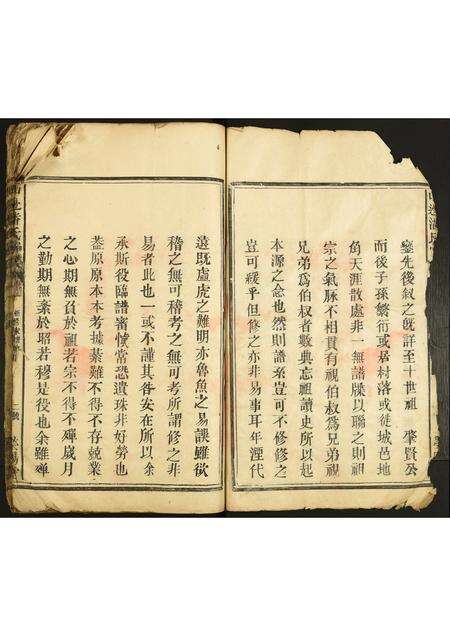 鑒先後敘之既詳至十世祖 肇賢公
而後子孫繁衍或居村落或徙城邑地
角天涯散處非一無譜牒以聯之則祖
宗之氣脉不相貫有視伯叔爲兄弟視
兄弟爲伯叔者數典忘祖讀史所以起
本源之念也然則譜系豈可不修修之
豈可緩乎但修之亦非易事耳年湮代
遠既虛虎之難明亦魯魚之易誤雖欲
稽之無可稽考之無可考所謂修之非
易者此也一或不謹其咎安在所以余
承斯役臨譜審愼常恐遺珠非好勞也
葢原原本本考據綦難不得不存兢業
之心期無負於祖若宗不得不殫歲月
之勤期無紊於昭若穆是役也余雖殫